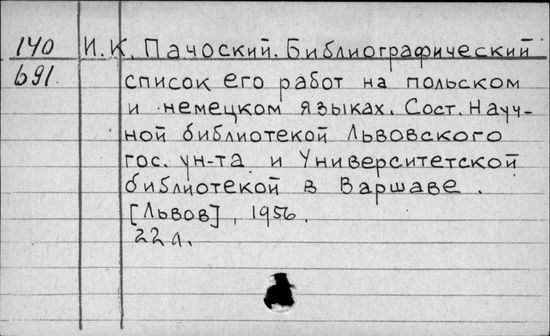 140 И.К. Пачоский. Библиографический
b91. список его работ на польском
и немецком языках. Сост. Науч-
ной библиотекой Львовского
гос. ун-та и Университетской
библиотекой в Варшаве.
[Львов], 1956.
22 л.